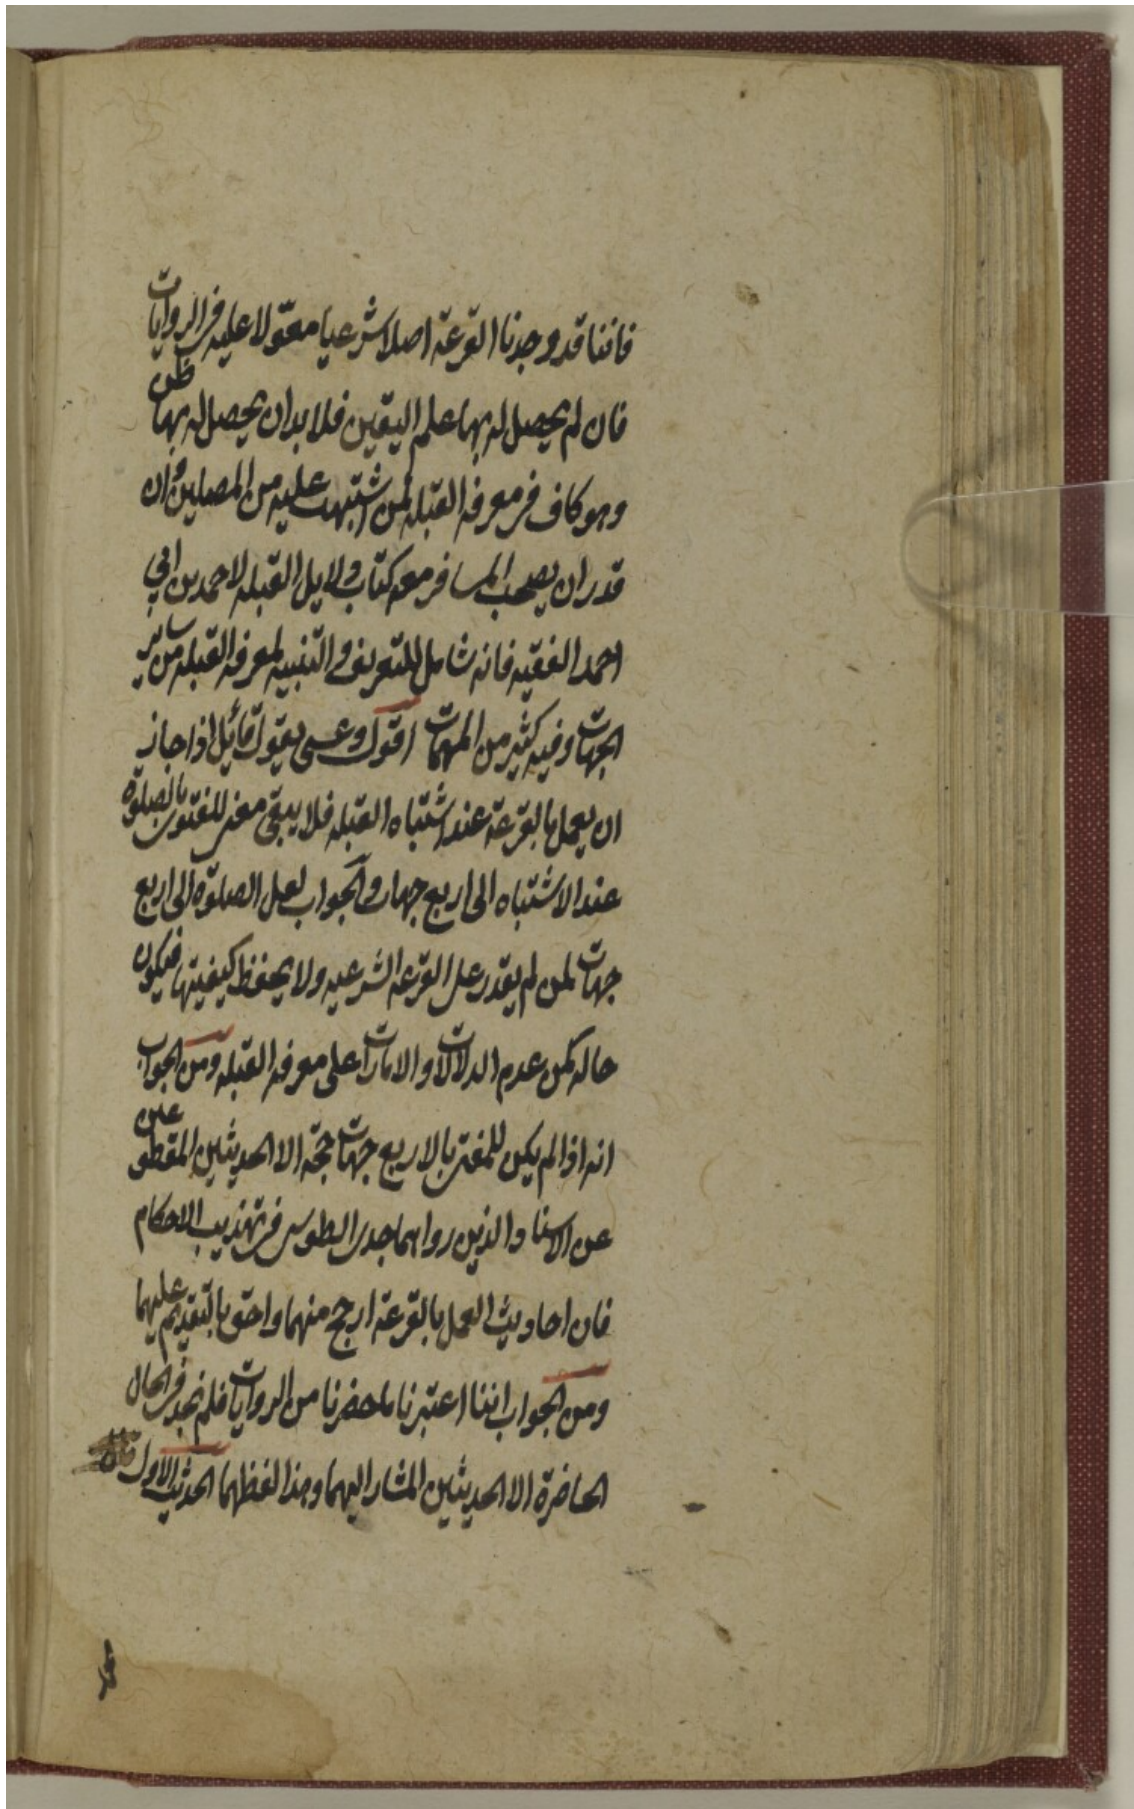 فاننا قد وجدنا القرعة اصلا شرعيا معوّلا عليه في الروايات
فان لم يحصل له بها علم اليقين فلا بد ان يحصل له بها ظن
وهو كاف في معرفه القبله لمن اشتبهت عليه من المصلين وان
قدر ان يصحب المسافر معه كتاب دلايل القبله لاحمد بن ابي
احمد الفقيه فانه شامل للتعريف والتنبيه لمعرفه القبله من ساير
الجهات وفيه كثير من المهمات اقول وعسى يقول قائل اذا جاز
ان يعمل بالقرعة عند اشتباه القبله فلا يبقى معنى للفتوى بالصلوة
عند الاشتباه الى اربع جهات والجواب لعل الصلوة الى اربع
جهات لمن لم يقدر على القرعه الشرعيه ولا يحفظ كيفيتها فيكون
حاله كمن عدم الدلالات والامارات على معرفه القبله ومن الجواب
انه اذا لم يكن للمفتي بالاربع جهات حجة الا الحديثين المقطوعين
عن الاسناد الذين رواهما جدى الطوسي في تهذيب الاحكام
فان احاديث العمل بالقرعة ارجح منهما واحق بالتقديم عليهما
ومن الجواب اننا اعتبرنا ما حضرنا من الروايات فلم نجد في الحال
الحاضرة الا الحديثين المشار اليهما وهذا لفظهما الحديث الاول